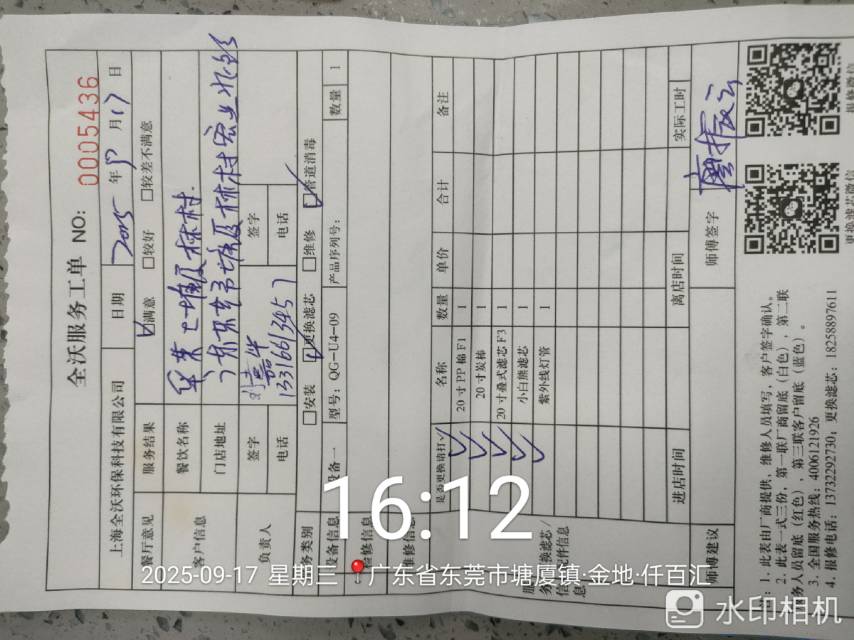 全沃服务工单 NO: 0005436
上海全沃环保科技有限公司 日期 2025 年 9 月 17 日
餐厅意见 服务结果 ☑满意 □较好 □较差不满意
客户信息 餐饮名称
门店地址
负责人 签字 签字
电话 13316613457 电话
务类别 □安装 ☑更换滤芯 □维修 ☑管道消毒
设备信息 设备一 型号: QG-U4-09 产品序列号: 数量 1
检修信息
维修信息
是否更换请打✓ 名称 数量 单价 合计 备注
✓ 20 寸 PP 棉 F1 1
✓ 20 寸炭棒 1
✓ 20 寸叠式滤芯 F3 1
✓ 小白熊滤芯 1
紫外线灯管 1
进店时间 离店时间 实际工时
师傅建议 师傅签字
注: 1. 此表由厂商提供, 维修人员填写, 客户签字确认。
2. 此表一式三份, 第一联厂商留底 (白色), 第二联
务人员留底 (红色), 第三联客户留底 (蓝色)。
3. 全国服务热线: 4006121926
4. 报修电话: 13732292730; 更换滤芯: 18258897611
更换滤芯微信
报修微信
16:12
2025-09-17 星期三 广东省东莞市塘厦镇·金地·仟百汇
水印相机